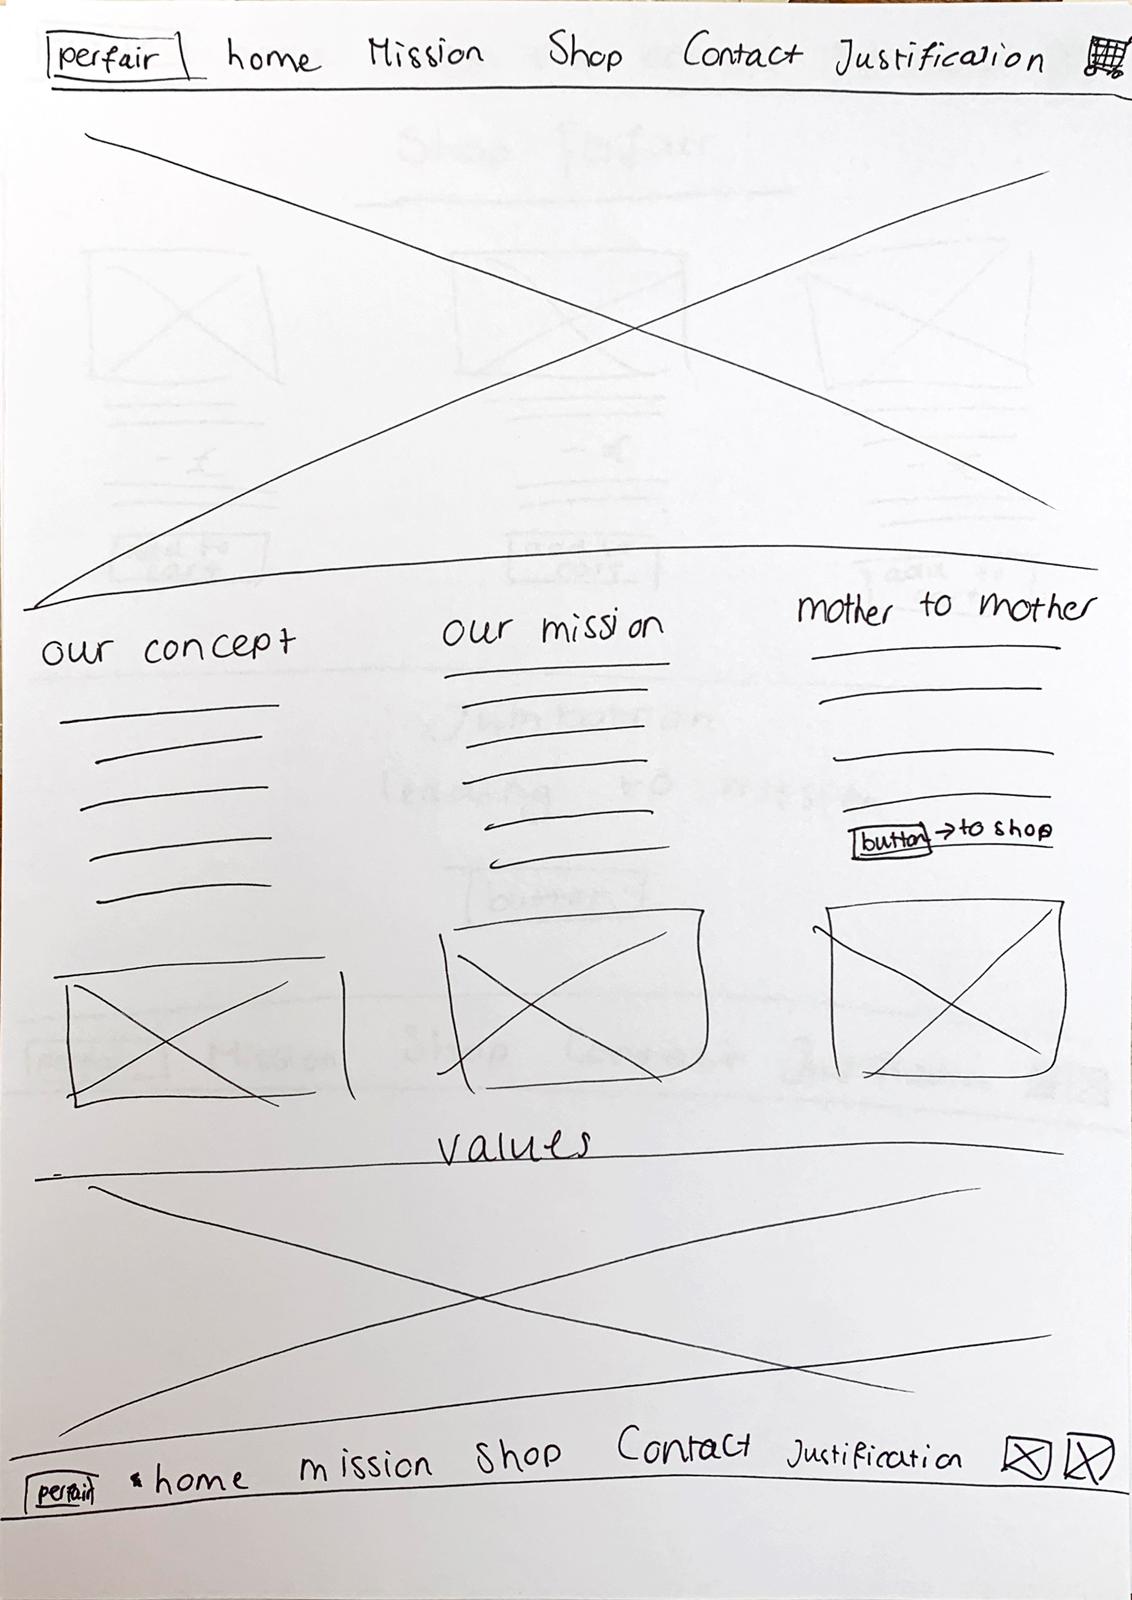 perfair home Mission Shop Contact Justification
our concept our mission mother to mother
button → to shop
values
perfair home mission shop Contact Justification